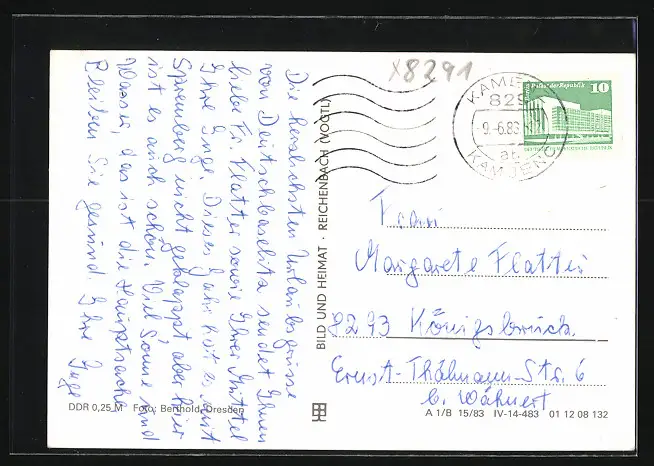 Die herzlichsten Urlaubsgrüsse
von Deutschbaselitz sendet Ihnen
liebe Fr. Flatter sowie Ihrer Mittel
Ihre Inge. Dieses Jahr hat es mit
Spremberg nicht geklappt aber hier
ist es auch schön. Viel Sonne und
Wasser, das ist die Hauptsache
Bleiben Sie gesund. Ihre Inge
DDR 0,25 M Foto: Berthold, Dresden
BILD UND HEIMAT · REICHENBACH (VOGTL)
X8291
KAMENZ
829
-9.-6.86
at
KAMJENC
Palast der Republik 10
Frau
Margarete Flatter
8273 Königsbrück
Ernst-Thälmann-Str. 6
b. Wähnert
A 1/B 15/83 IV-14-483 01 12 08 132